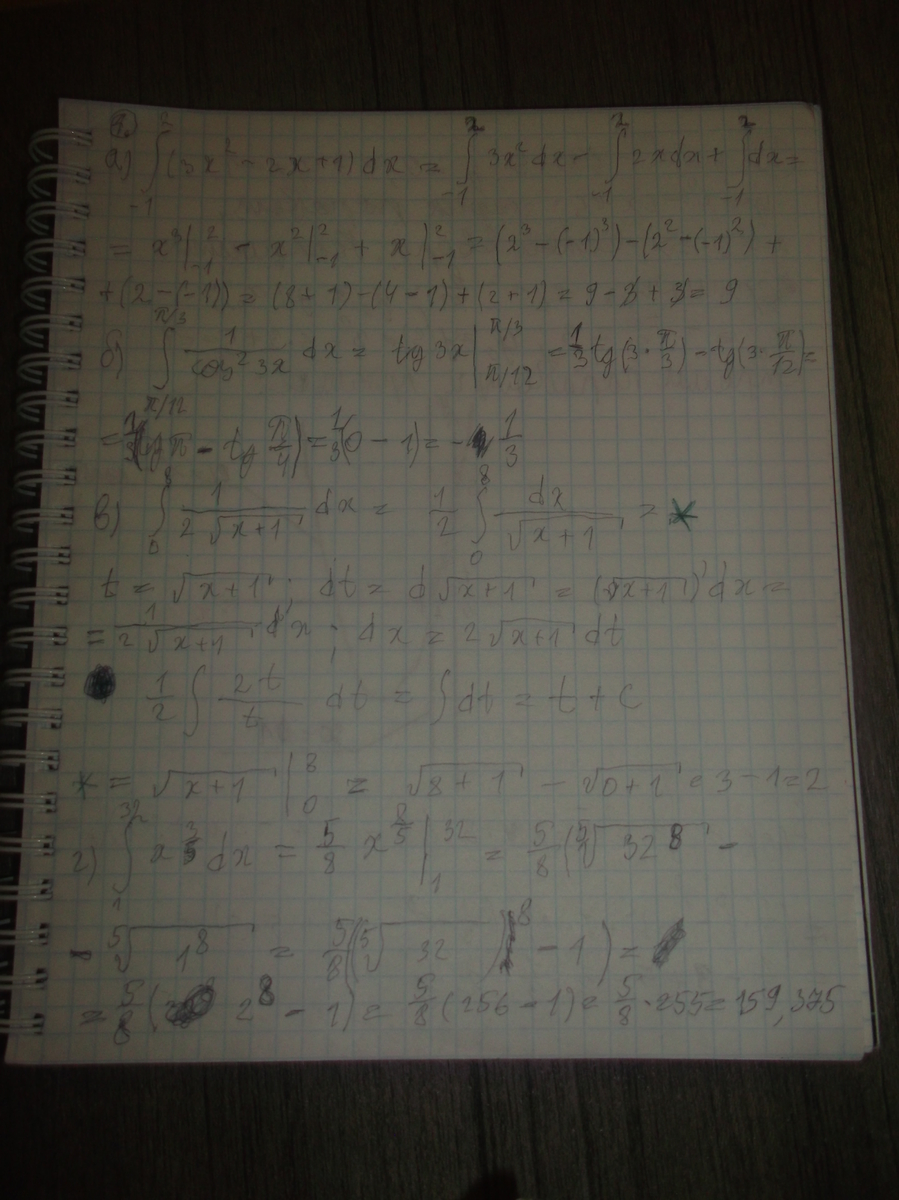 1.
а) ∫_{-1}^{2} (3x² - 2x + 1) dx = ∫_{-1}^{2} 3x² dx - ∫_{-1}^{2} 2x dx + ∫_{-1}^{2} dx =
= x³|_{-1}^{2} - x²|_{-1}^{2} + x|_{-1}^{2} = (2³ - (-1)³) - (2² - (-1)²) +
+ (2 - (-1)) = (8 + 1) - (4 - 1) + (2 + 1) = 9 - 3 + 3 = 9
б) ∫_{π/12}^{π/3} 1/(cos² 3x) dx = tg 3x|_{π/12}^{π/3} = 1/3 tg(3 · π/3) - tg(3 · π/12) =
= 1/3 (tg π - tg π/4) = 1/3 (0 - 1) = - 1/3
в) ∫_{0}^{8} 1/(2√(x+1)) dx = 1/2 ∫_{0}^{8} dx/√(x+1) = *
t = √(x+1) ; dt = d√(x+1) = (√(x+1))' dx =
= 1/(2√(x+1)) dx ; dx = 2√(x+1) dt
1/2 ∫ 2t/t dt = ∫ dt = t + C
* = √(x+1) |_{0}^{8} = √(8+1) - √(0+1) = 3 - 1 = 2
г) ∫_{1}^{32} x^{3/5} dx = 5/8 x^{8/5}|_{1}^{32} = 5/8 (⁵√(32⁸) -
- ⁵√(1⁸) = 5/8 ((⁵√32)⁸ - 1) =
= 5/8 (2⁸ - 1) = 5/8 (256 - 1) = 5/8 · 255 = 159,375